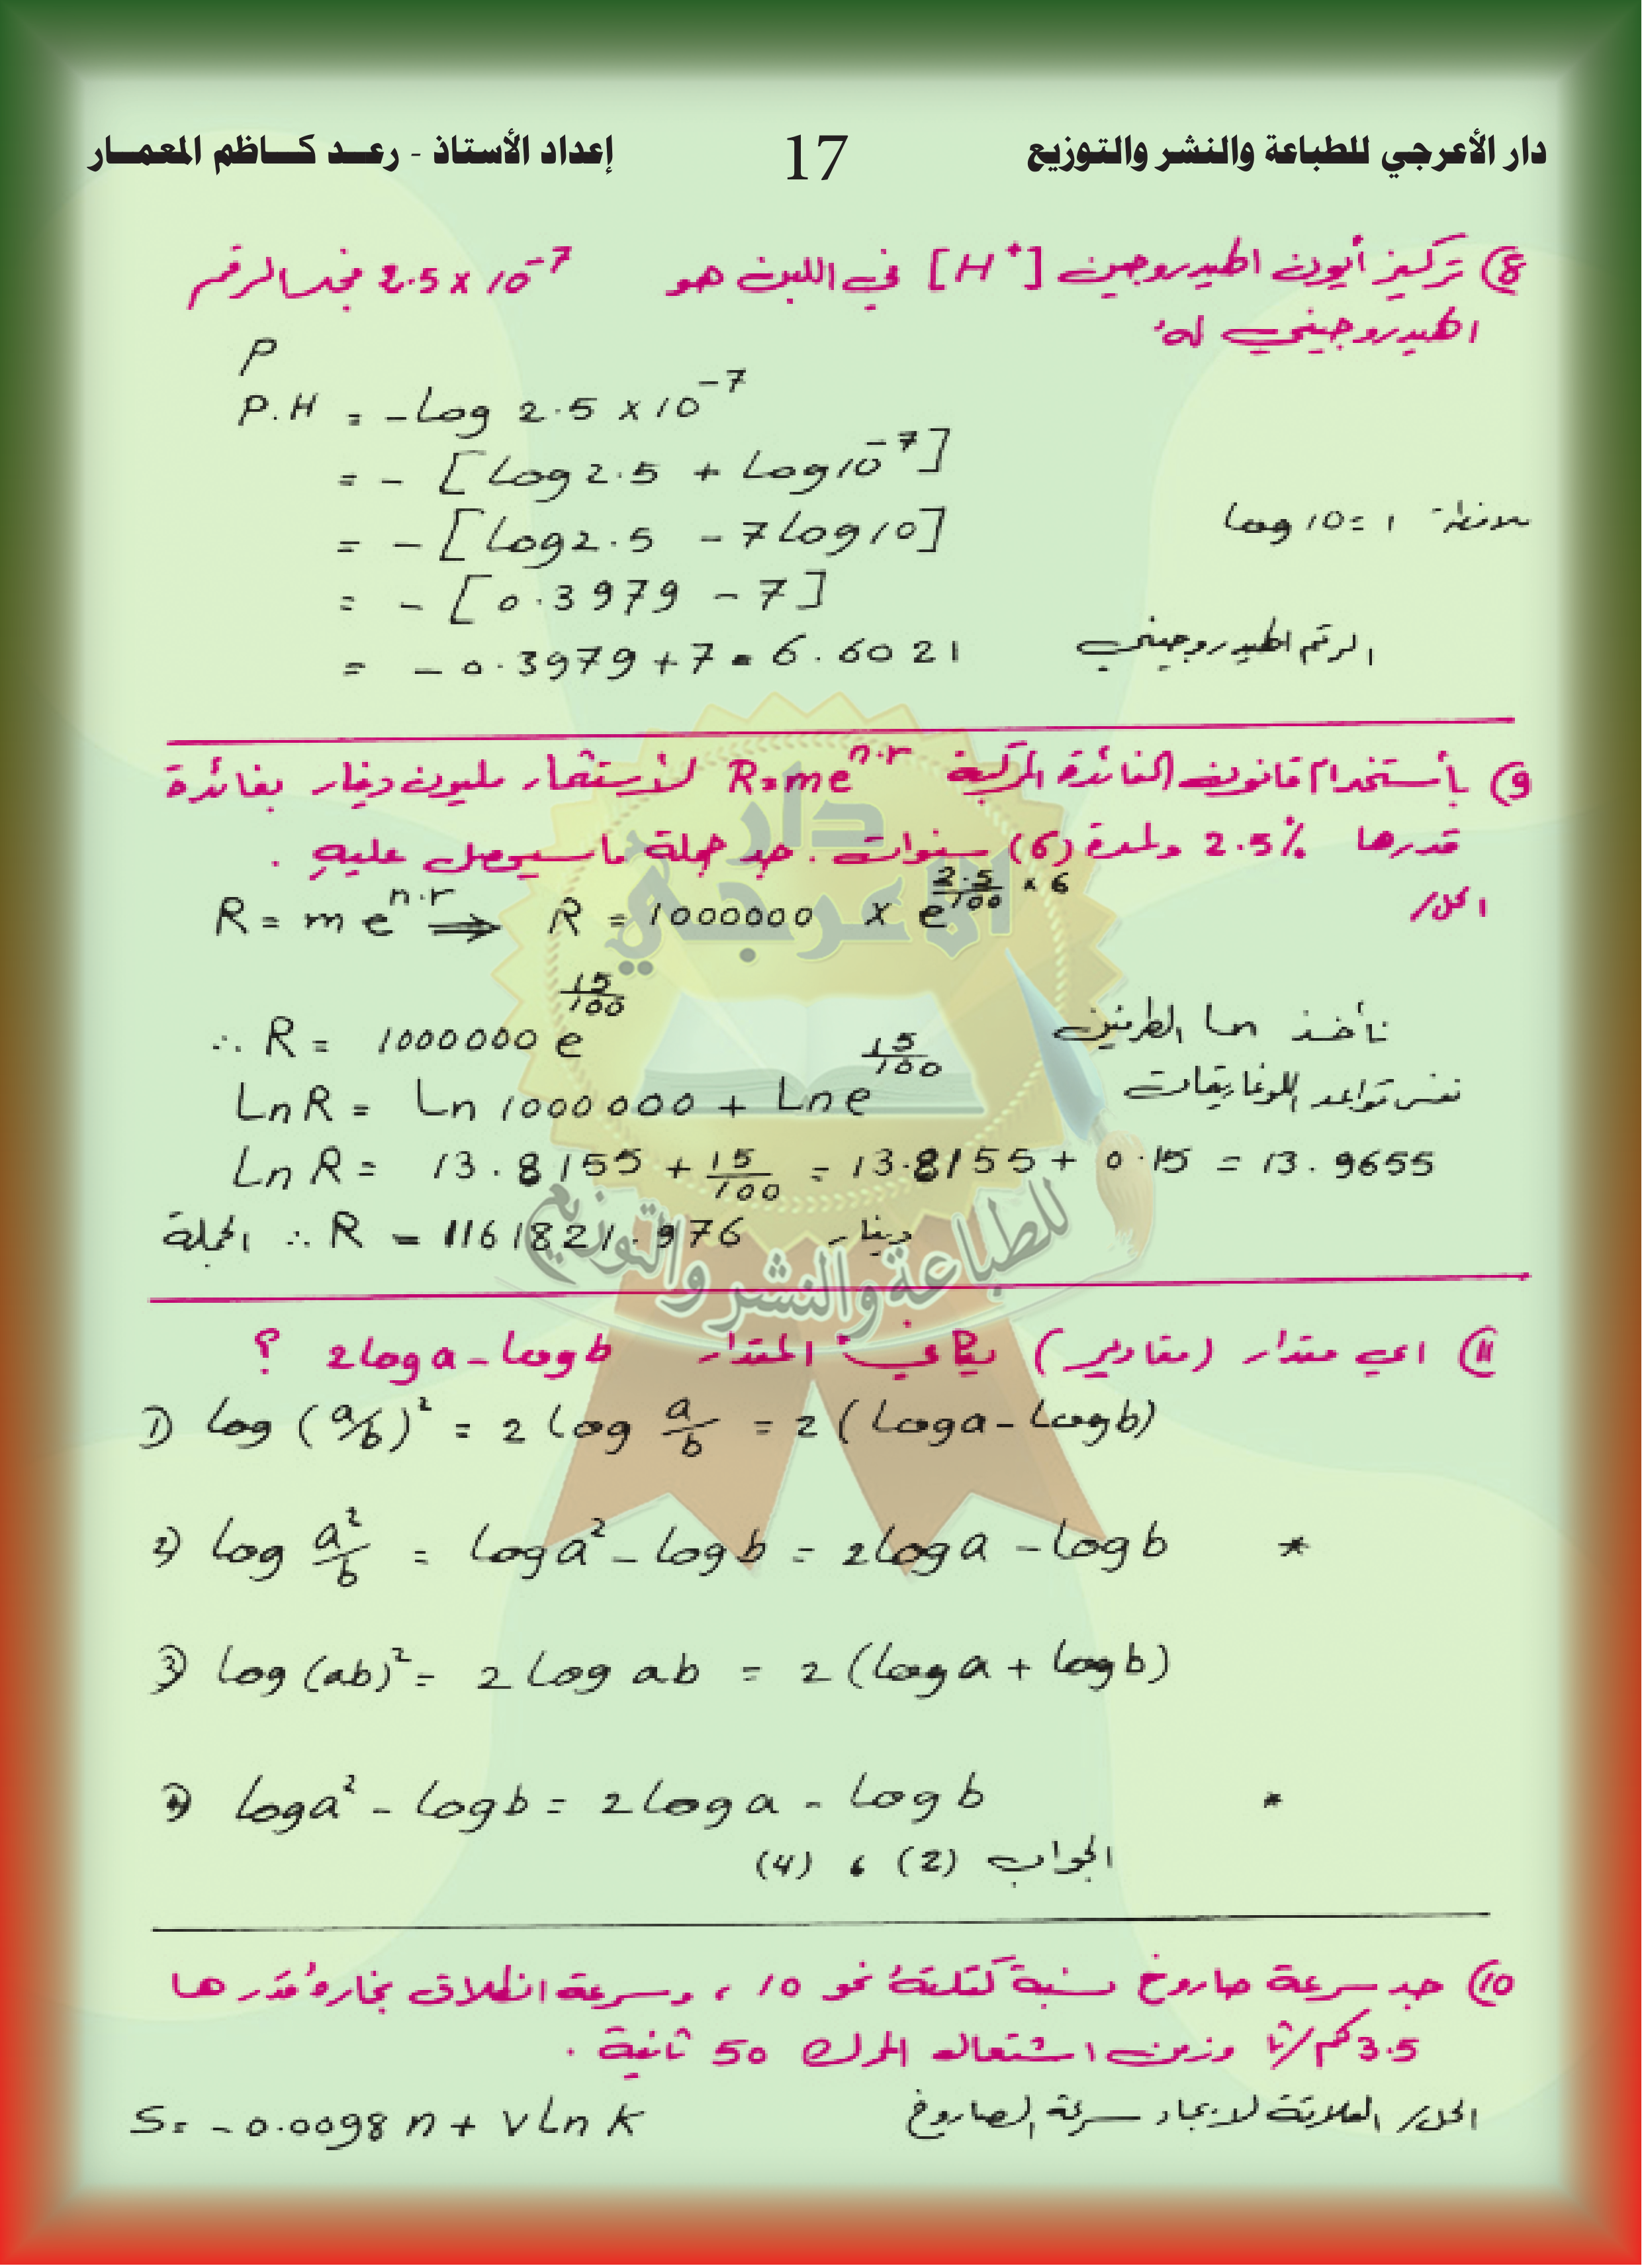 دار الأعرجي للطباعة والنشر والتوزيع 17 إعداد الأستاذ - رعد كاظم المعمار
8) تركيز أيون الهيدروجين [H⁺] في اللبن هو 2.5 × 10⁻⁷ فجد الرقم
الهيدروجيني له
P
P.H = -Log 2.5 × 10⁻⁷
= - [Log 2.5 + Log 10⁻⁷]
= - [Log 2.5 - 7 Log 10] ملاحظة Log 10 = 1
= - [0.3979 - 7]
= - 0.3979 + 7 = 6.6021 الرقم الهيدروجيني
9) بأستخدام قانون الفائدة المركبة R = me^(n.r) لأستثمار مليون دينار بفائدة
قدرها 2.5% ولمدة (6) سنوات . جد جملة ما سيحصل عليه .
الحل/ R = m e^(n.r) ⇒ R = 1000000 × e^(2.5/100 × 6)
∴ R = 1000000 e^(15/100) نأخذ Ln الطرفين
LnR = Ln 1000000 + Ln e^(15/100) نفس قواعد اللوغاريتمات
Ln R = 13.8155 + 15/100 = 13.8155 + 0.15 = 13.9655
الجملة ∴ R = 1161821.976 دينار
11) اي مقدار (مقادير) يكافئ المقدار 2Log a - Log b ؟
1) Log (a/b)² = 2 Log a/b = 2 (Log a - Log b)
2) Log a²/b = Log a² - Log b = 2Log a - Log b *
3) Log (ab)² = 2 Log ab = 2 (Log a + Log b)
4) Log a² - Log b = 2Log a - Log b *
الجواب (2) ، (4)
10) جد سرعة صاروخ نسبة كتلته نحو 10 ، وسرعة انطلاق بخاره قدرها
3.5 كم/ثا وزمن اشتعال المحرك 50 ثانية .
الحل/ العلاقة لايجاد سرعة الصاروخ S = -0.0098 n + V Ln K
دار
الاعرجي
للطباعة والنشر والتوزيع